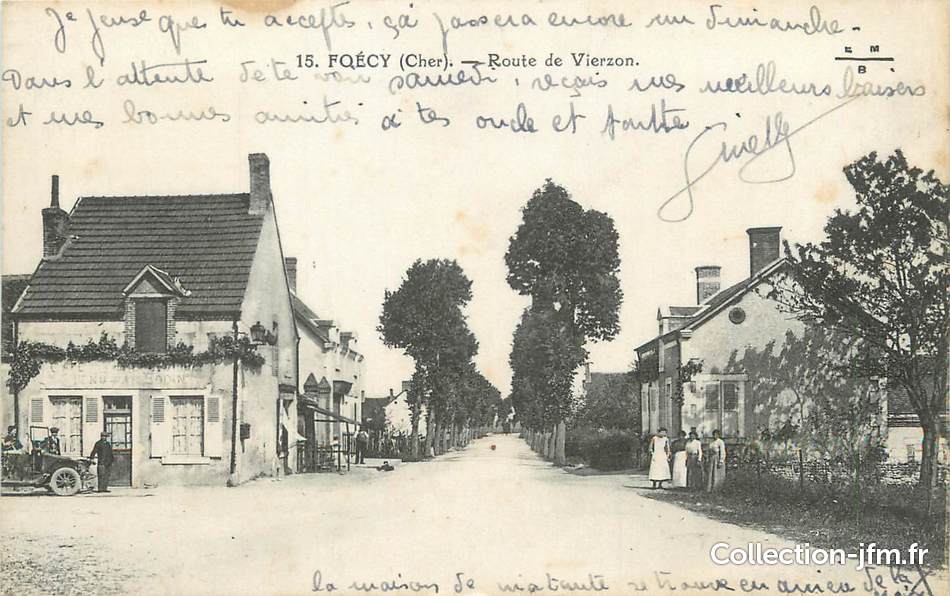 Je pense que tu acceptes, ça passera encore un dimanche.
15. FOËCY (Cher). — Route de Vierzon.
E M
B
Dans l'attente de te voir samedi, reçois mes meilleurs baisers
et mes bonnes amitiés à tes oncle et tante.
TENU PAR
Collection-jfm.fr
la maison de ma tante se trouve en arrière de la